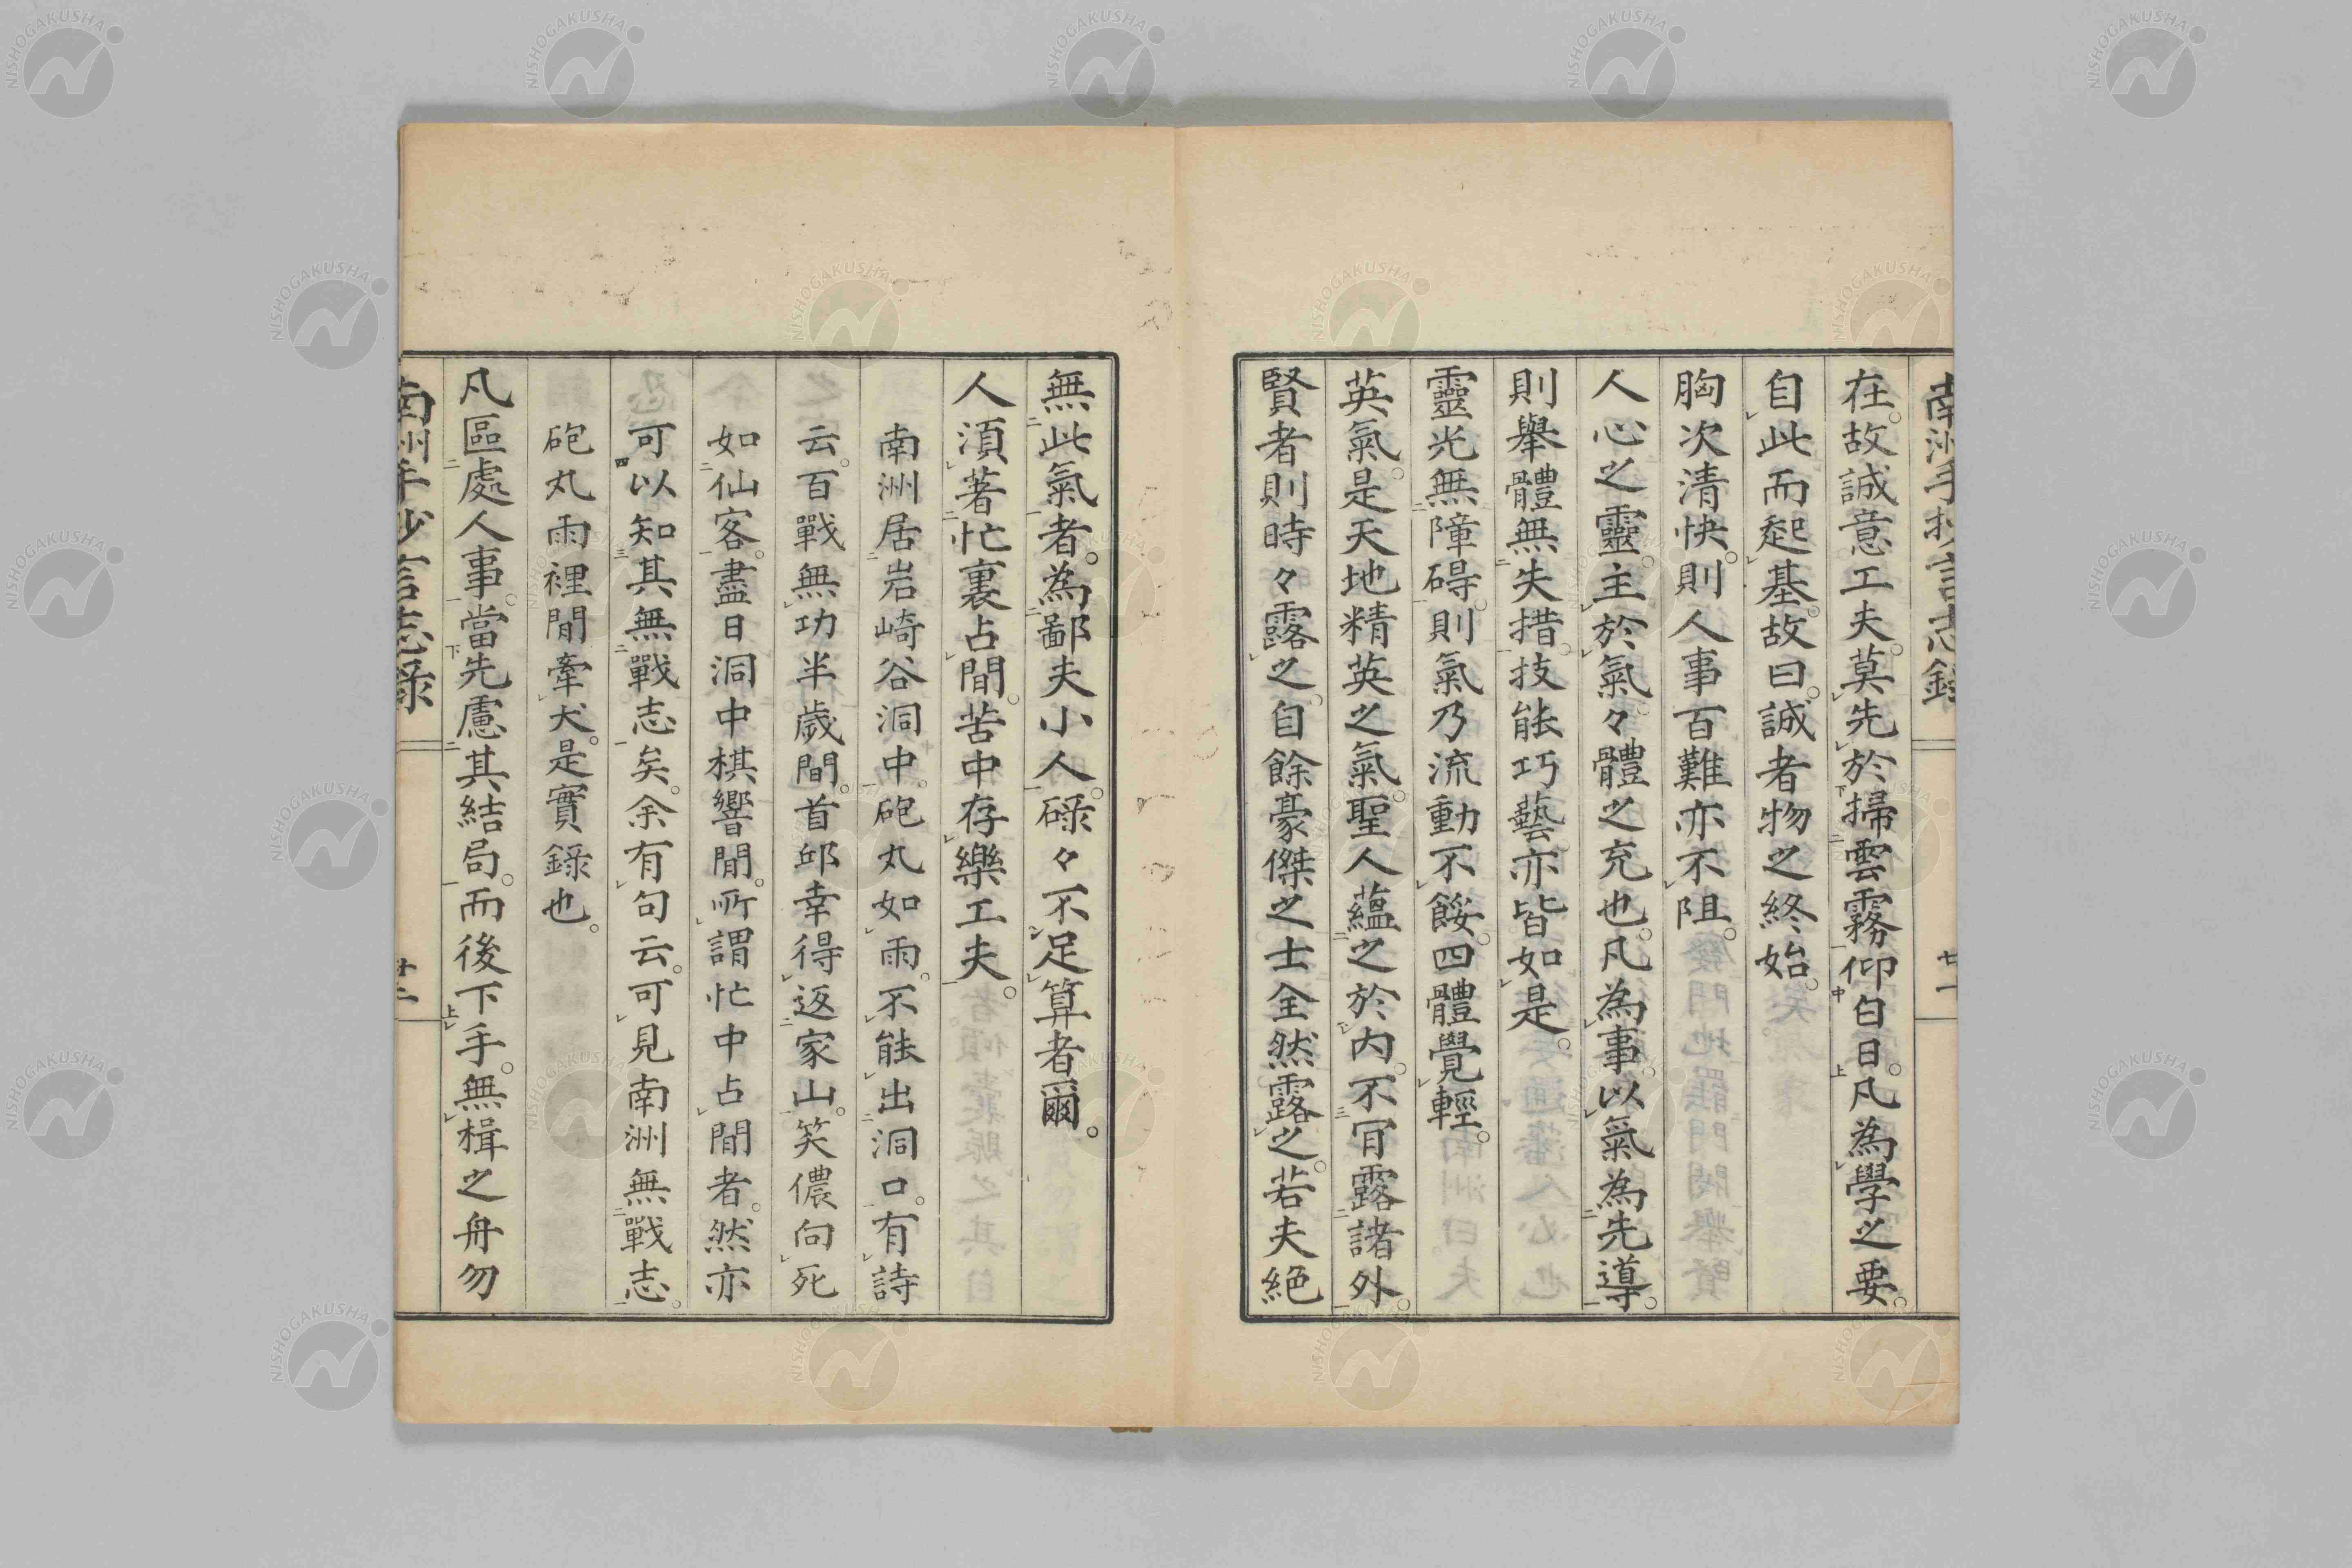 南洲手抄言志錄
廿一
在。故誠意工夫。莫先於掃雲霧仰白日。凡為學之要。
自此而起基。故曰。誠者物之終始。
胸次清快。則人事百難亦不阻。
人心之靈。主於氣。々體之充也。凡為事。以氣為先導。
則舉體無失措。技能巧藝。亦皆如是。
靈光無障碍。則氣乃流動不餒。四體覺輕。
英氣。是天地精英之氣。聖人蘊之於內。不肎露諸外。
賢者則時々露之。自餘豪傑之士全然露之。若夫絕
無此氣者。為鄙夫小人。碌々不足算者爾。
人須著忙裏占間。苦中存樂工夫。
南洲居岩崎谷洞中。砲丸如雨。不能出洞口。有詩
云。百戰無功半歲間。首邱幸得返家山。笑儂向死
如仙客。盡日洞中棋響間。所謂忙中占間者。然亦
可以知其無戰志矣。余有句云。可見南洲無戰志。
砲丸雨裡間牽犬。是實錄也。
凡區處人事。當先慮其結局。而後下手。無楫之舟勿
南洲手抄言志錄
廿二